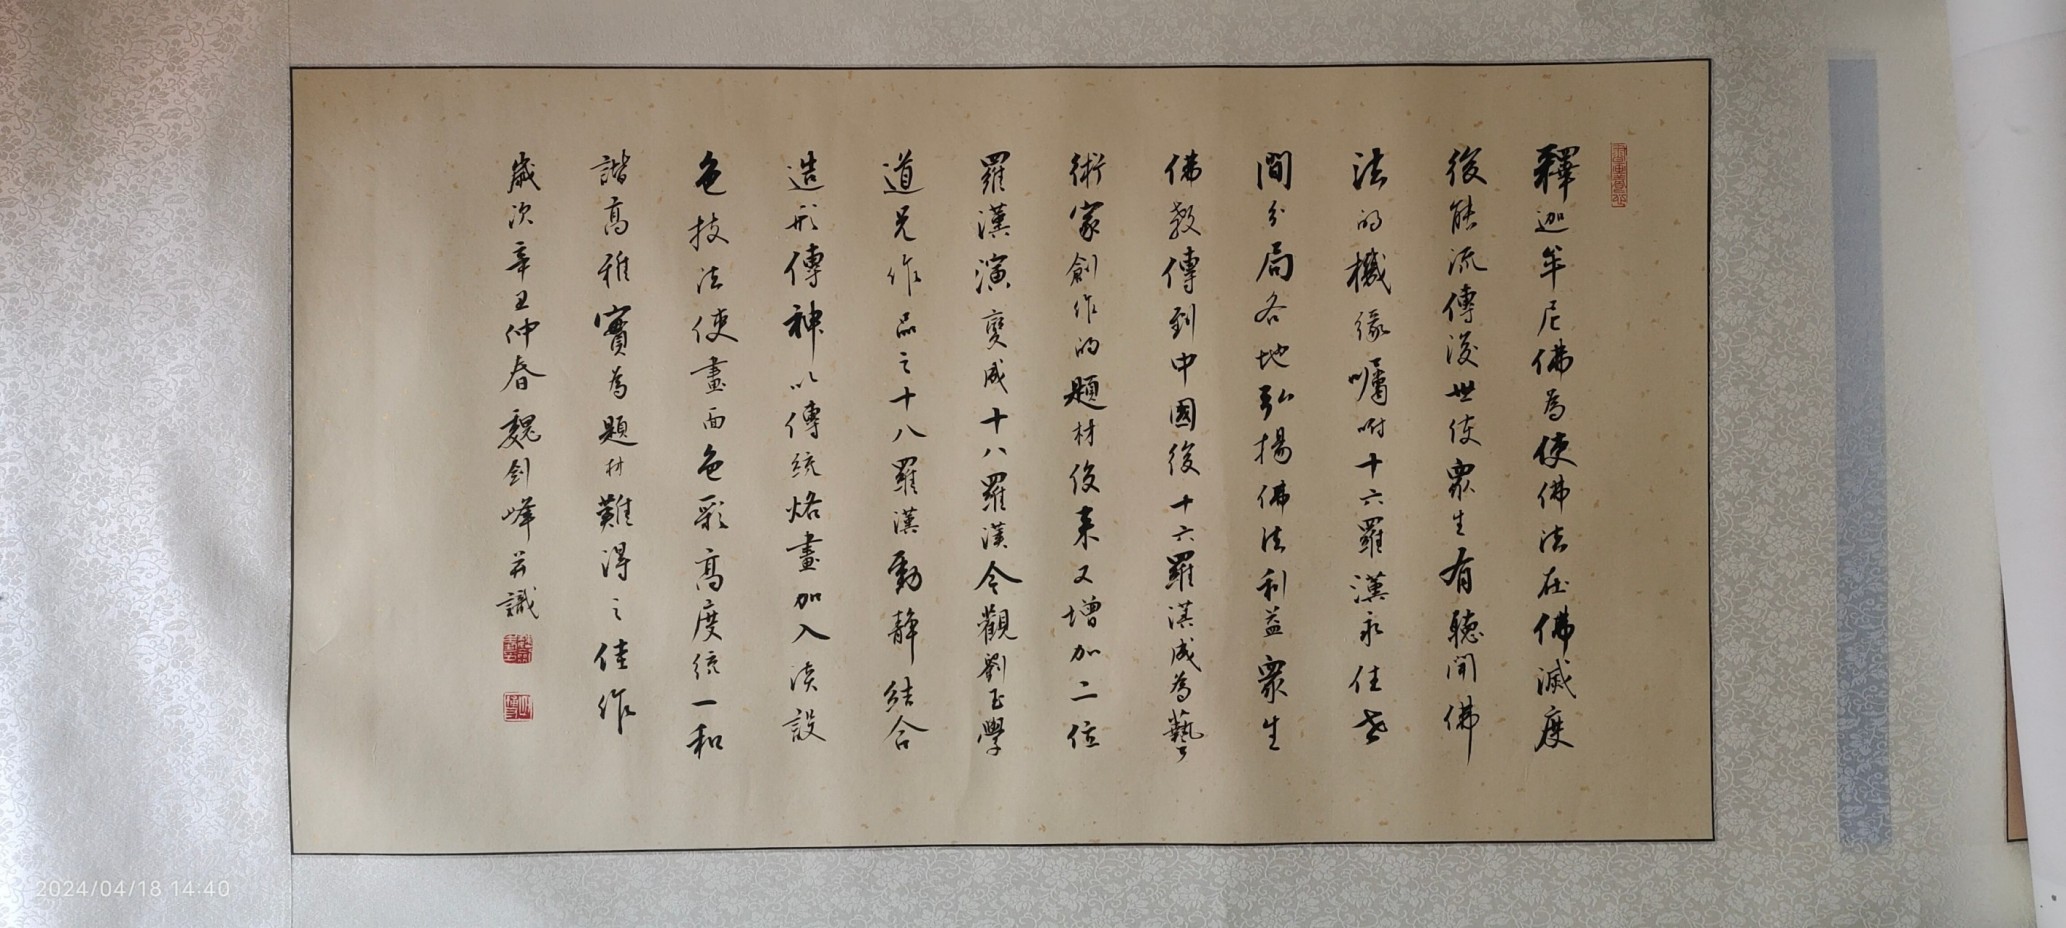 釋迦牟尼佛為使佛法在佛滅度
後能流傳後世使眾生有聽聞佛
法的機緣囑咐十六羅漢永住世
間分局各地弘揚佛法利益眾生
佛教傳到中國後十六羅漢成為藝
術家創作的題材後來又增加二位
羅漢演變成十八羅漢今觀劉玉學
道兄作品之十八羅漢動靜結合
造形傳神以傳統烙畫加入淡設
色技法使畫面色彩高度統一和
諧高雅實為題材難得之佳作
歲次辛丑仲春魏劍峰並識
2024/04/18 14:40